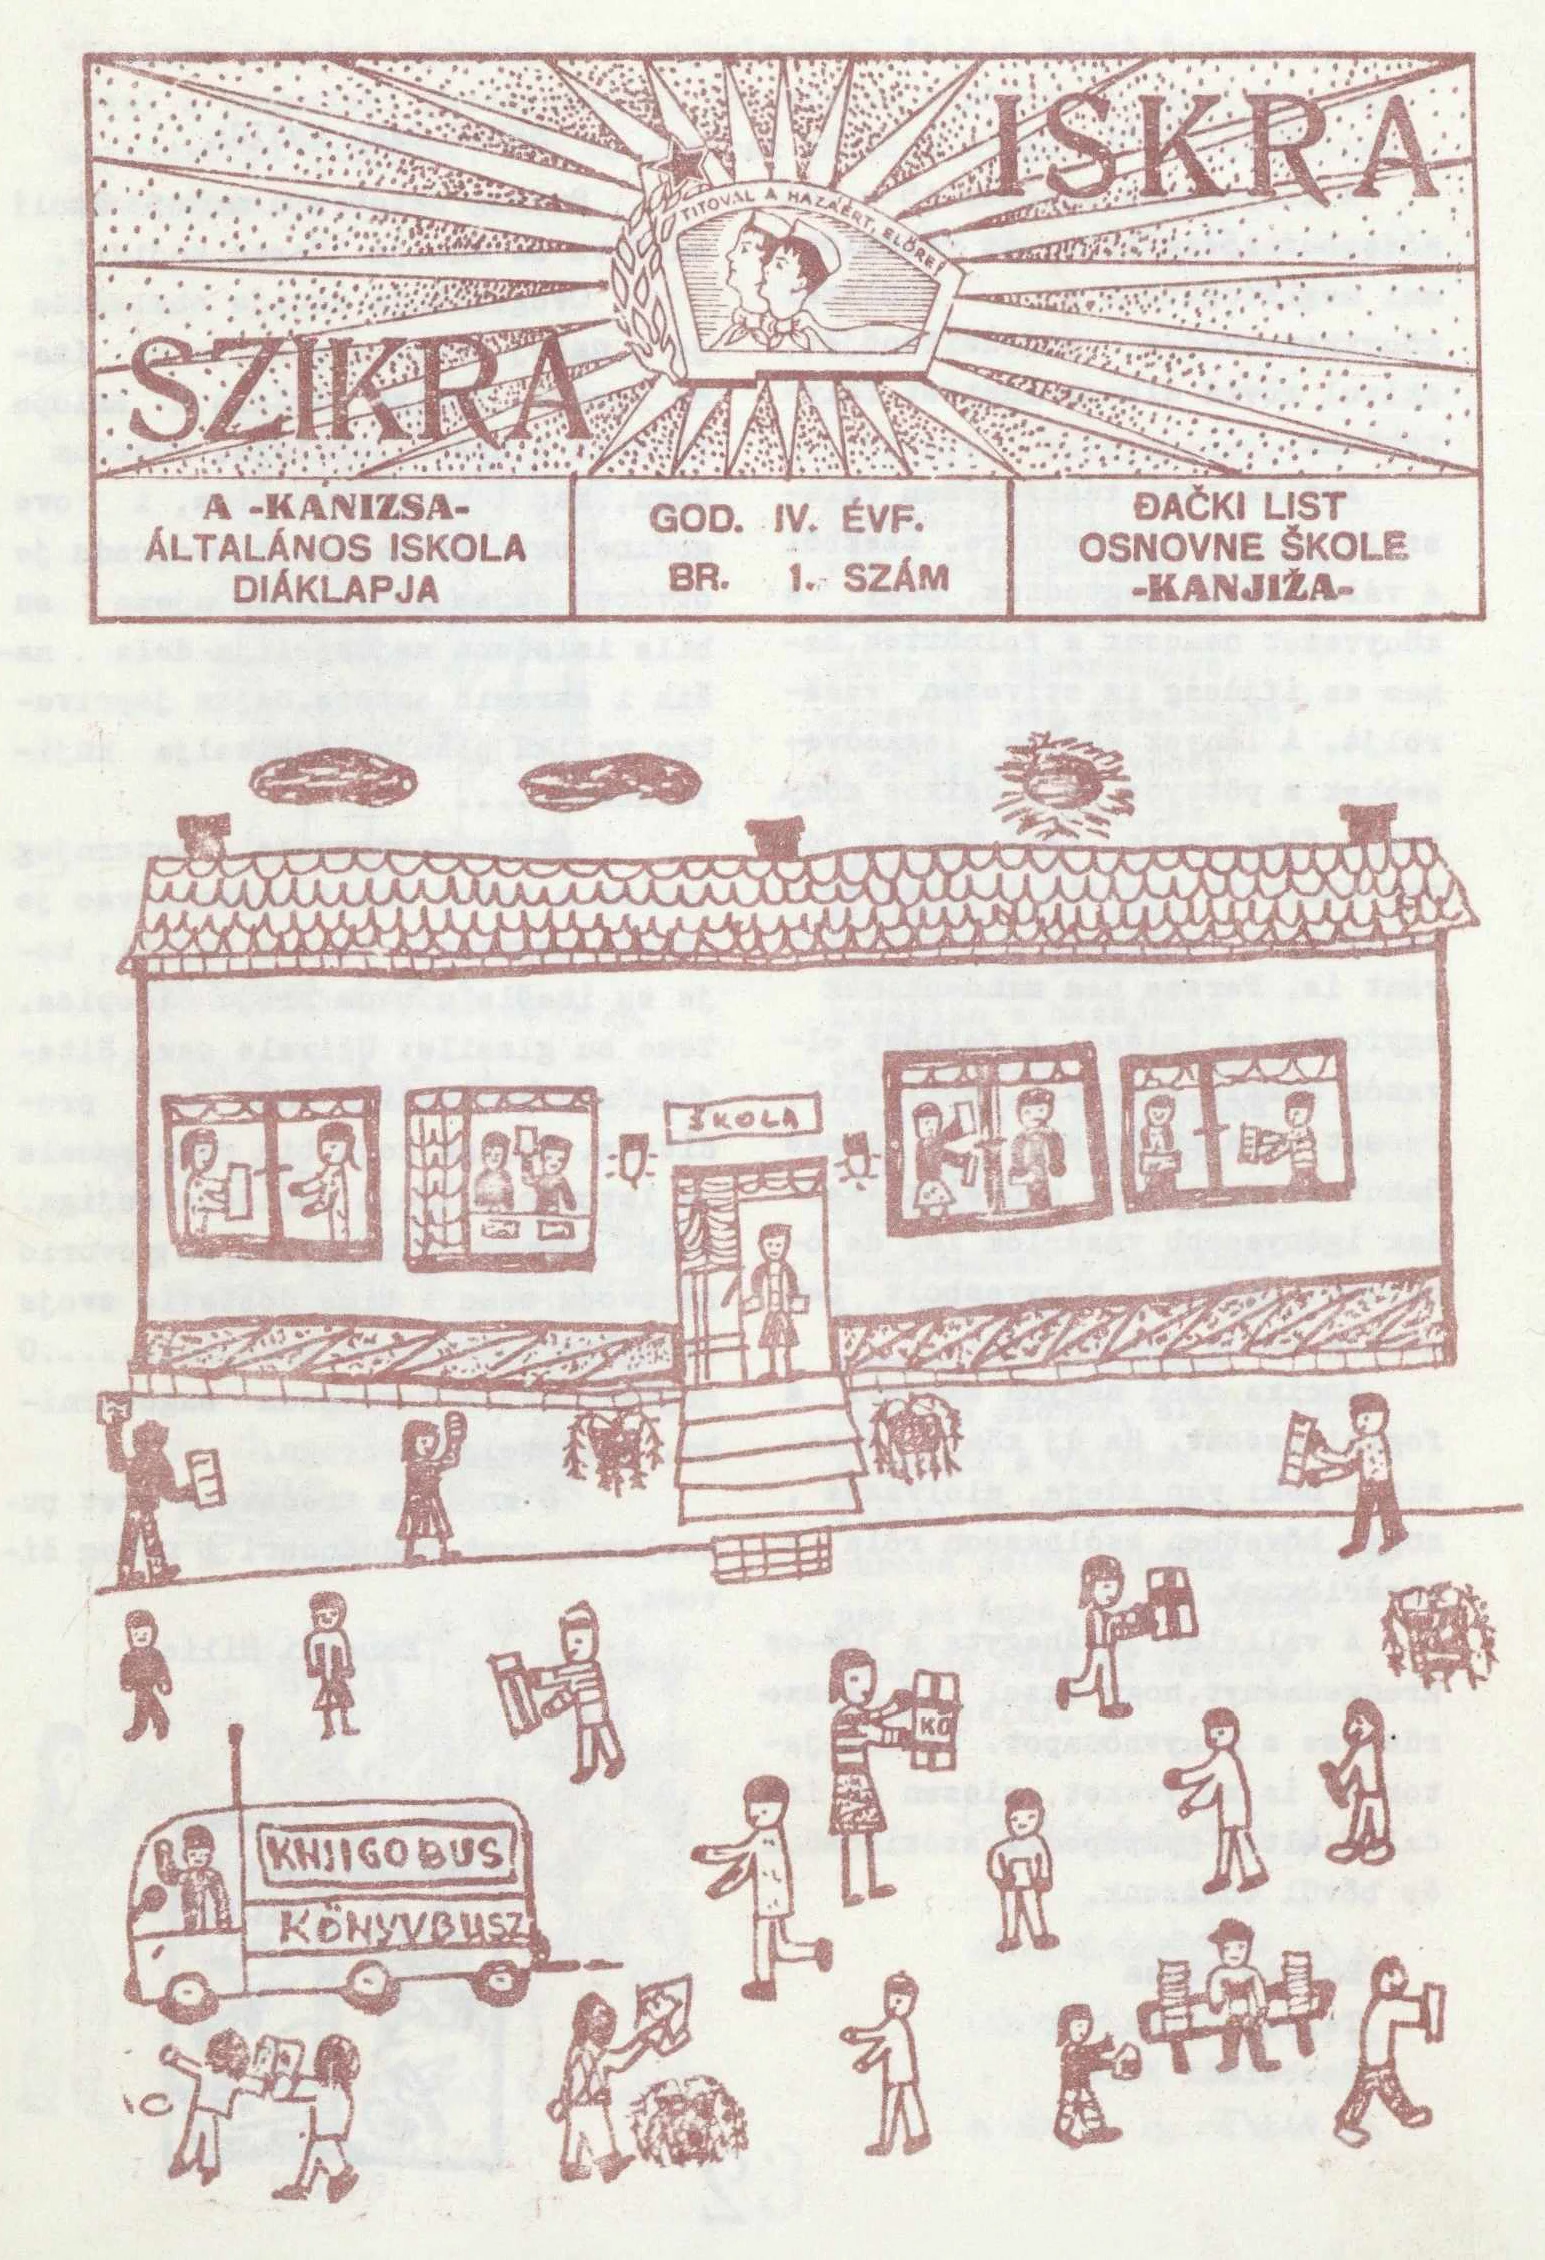 ISKRA
TITOVAL A HAZÁÉRT, ELŐRE!
SZIKRA
A -KANIZSA-
ÁLTALÁNOS ISKOLA
DIÁKLAPJA
GOD. IV. ÉVF.
BR. 1. SZÁM
ĐAČKI LIST
OSNOVNE ŠKOLE
-KANJIŽA-
ŠKOLA
KÖ
KNJIGOBUS
KÖNYVBUSZ